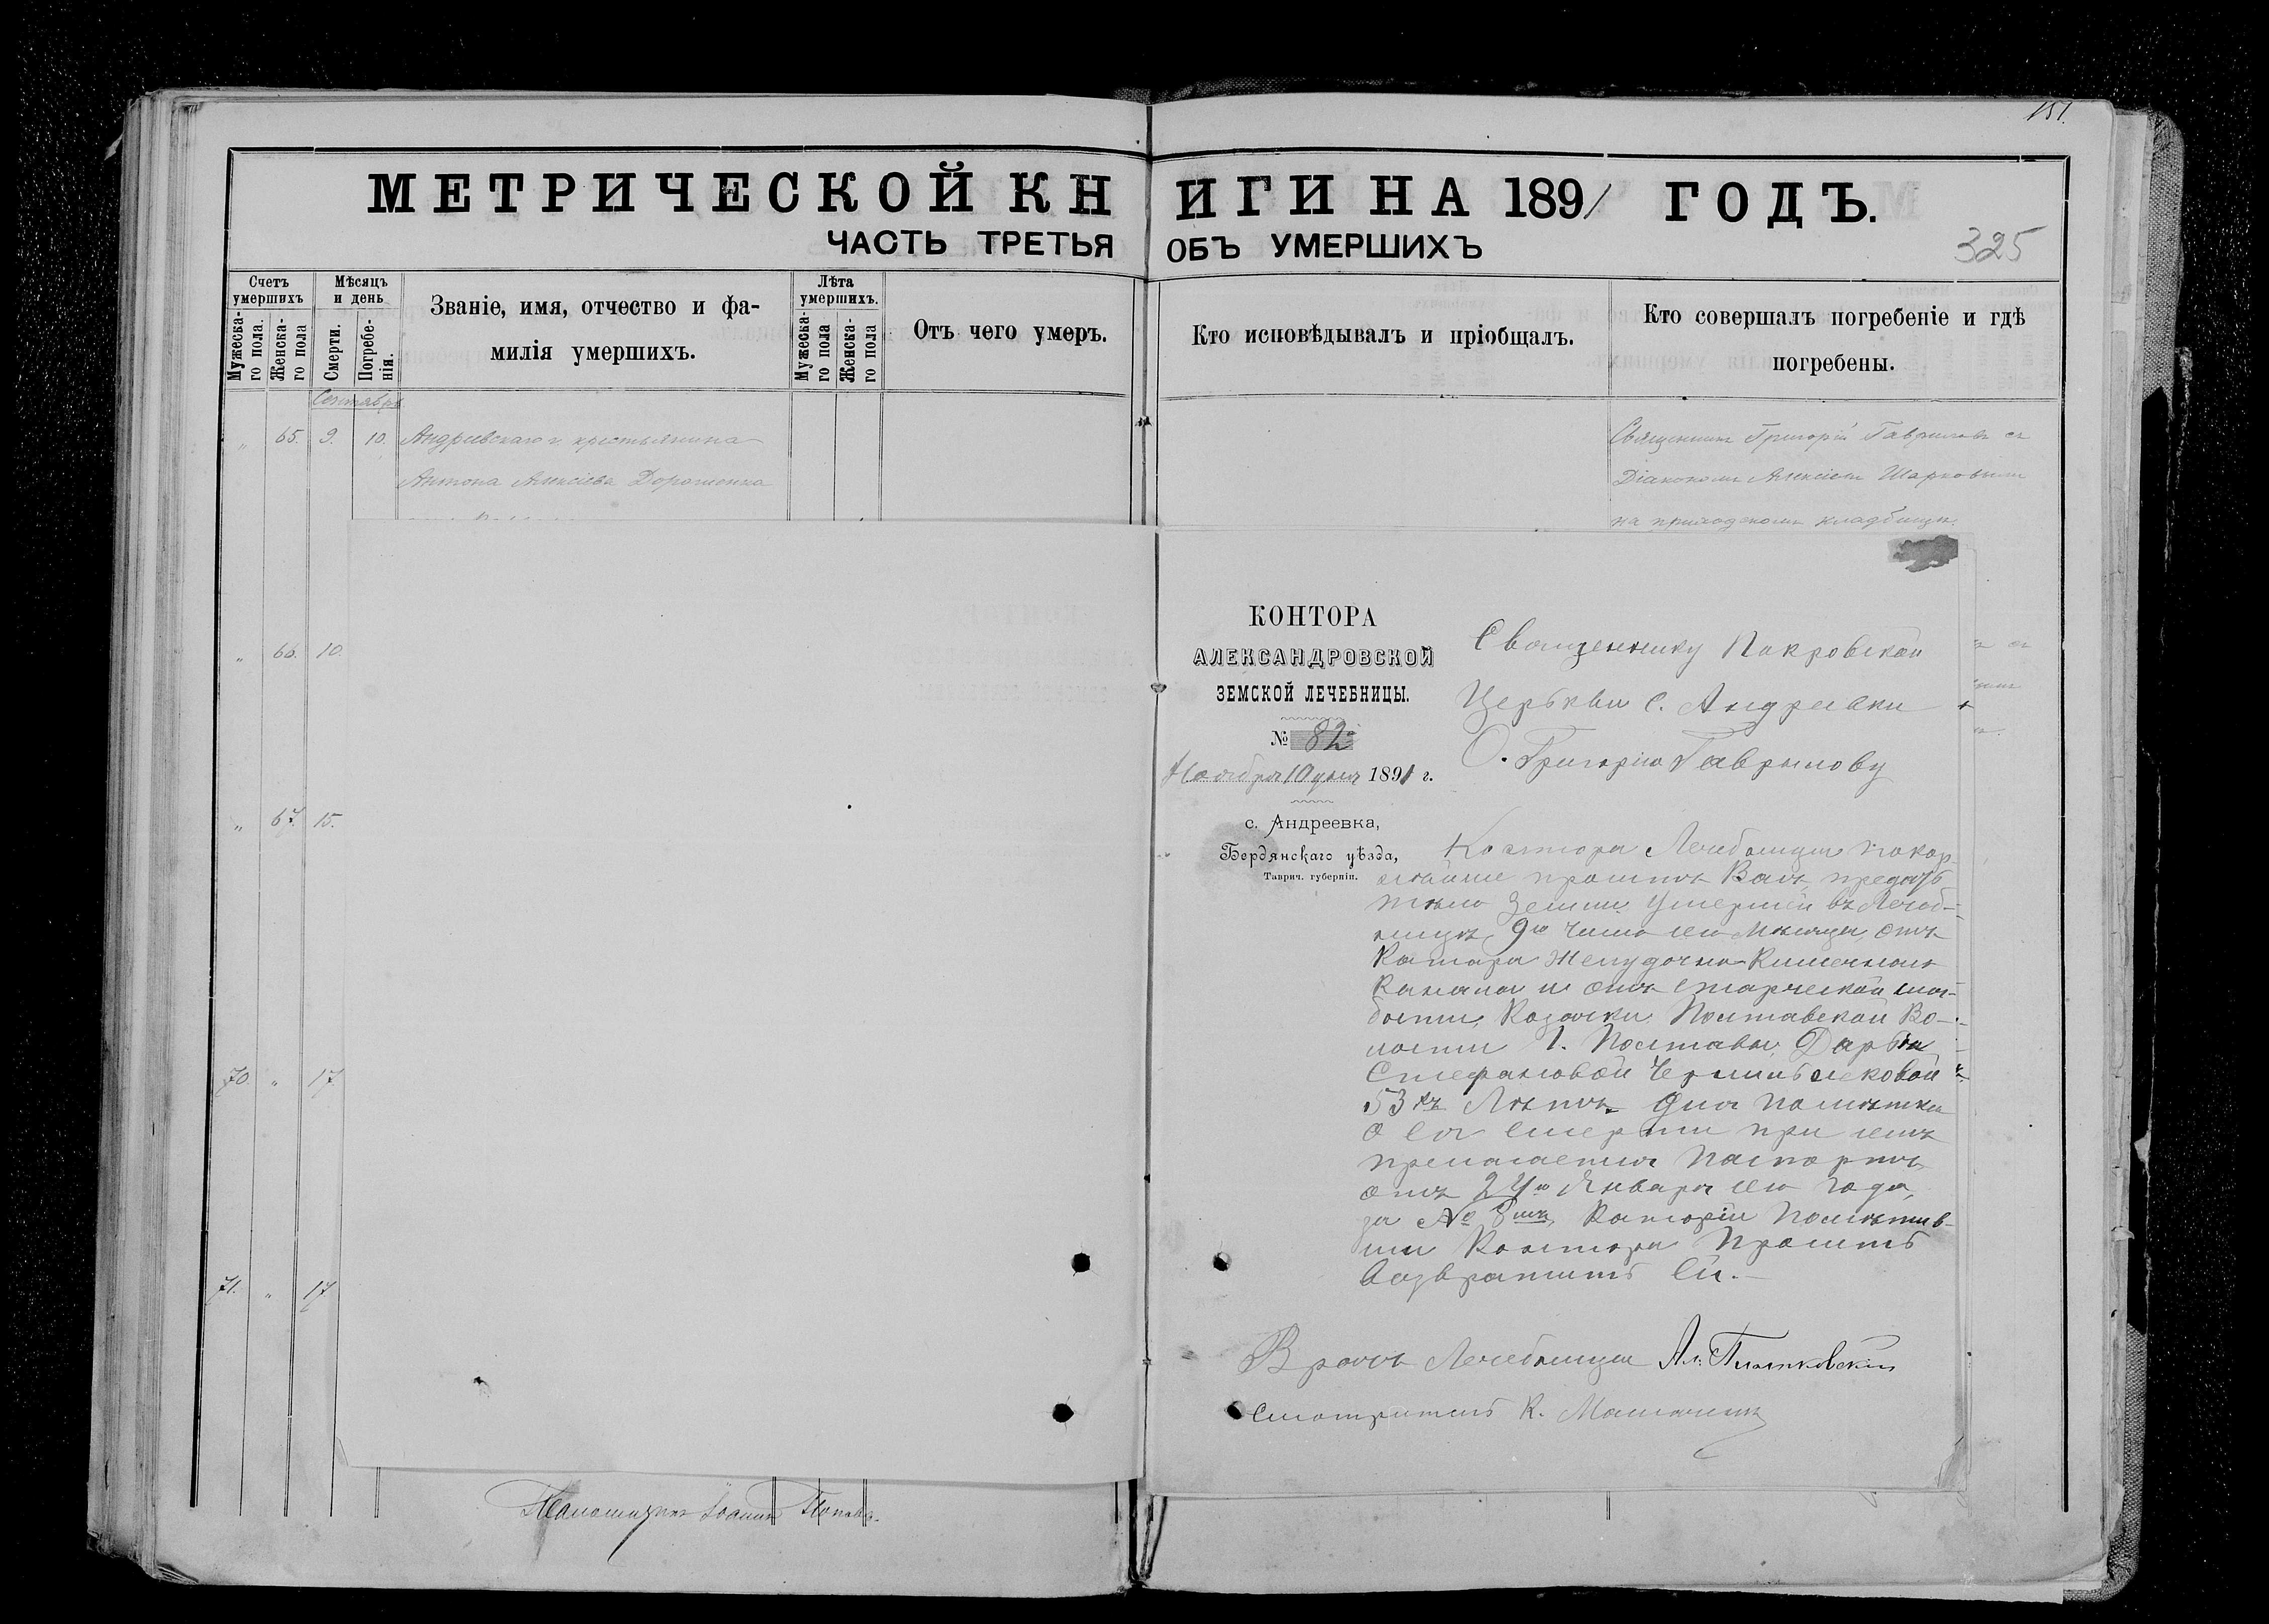 151.
МЕТРИЧЕСКОЙ КНИГИ НА 1891 ГОДЪ.
ЧАСТЬ ТРЕТЬЯ ОБЪ УМЕРШИХЪ
325
Счетъ умершихъ
Мужеска-го пола.
Женска-го пола
Мѣсяцъ и день
Смерти.
Погребе-нія.
Званіе, имя, отчество и фа-
милія умершихъ.
Лѣта умершихъ.
Мужеска-го пола
Женска-го пола
Отъ чего умеръ.
Кто исповѣдывалъ и пріобщалъ.
Кто совершалъ погребеніе и гдѣ
погребены.
Сентябрь
„ 65. 9. 10. Андреевскаго крестьянина
Антона Алексіева Дорошенка
Священникъ Григорій Гавриловъ съ
Діакономъ Алексіемъ Шарковымъ
на приходскомъ кладбищѣ.
„ 66. 10.
„ 67. 15.
70. „ 17.
71. „ 17
КОНТОРА
АЛЕКСАНДРОВСКОЙ
ЗЕМСКОЙ ЛЕЧЕБНИЦЫ.
№ 82
Ноября 10 дня 1891 г.
с. Андреевка,
Бердянскаго уѣзда,
Таврич. губерніи.
Священнику Покровской
Церькви с. Андреевки
О. Григорію Гаврилову
Контора Лечебницы покор-
нѣйше проситъ Васъ предать
тѣло земли умершей въ Лечеб-
ницѣ 9го числа сего Мѣсяца отъ
Катара Желудочно-Кишечнаго
Канала и отъ старческой сла-
бости, Козачки Полтавской Во-
лости Г. Полтавы, Дарьи
Стефановой
53хъ Лѣтъ. Для помѣтки
о Ея смерти при семъ
прилагается Паспортъ
отъ 24го Января сего года,
за № 8мъ, Каторій помѣтив-
ши Контора проситъ
возвратить Ей.
Врачъ Лечебницы Ал.
Смотритель К.
Псаломщикъ Іоаннъ Поповъ.